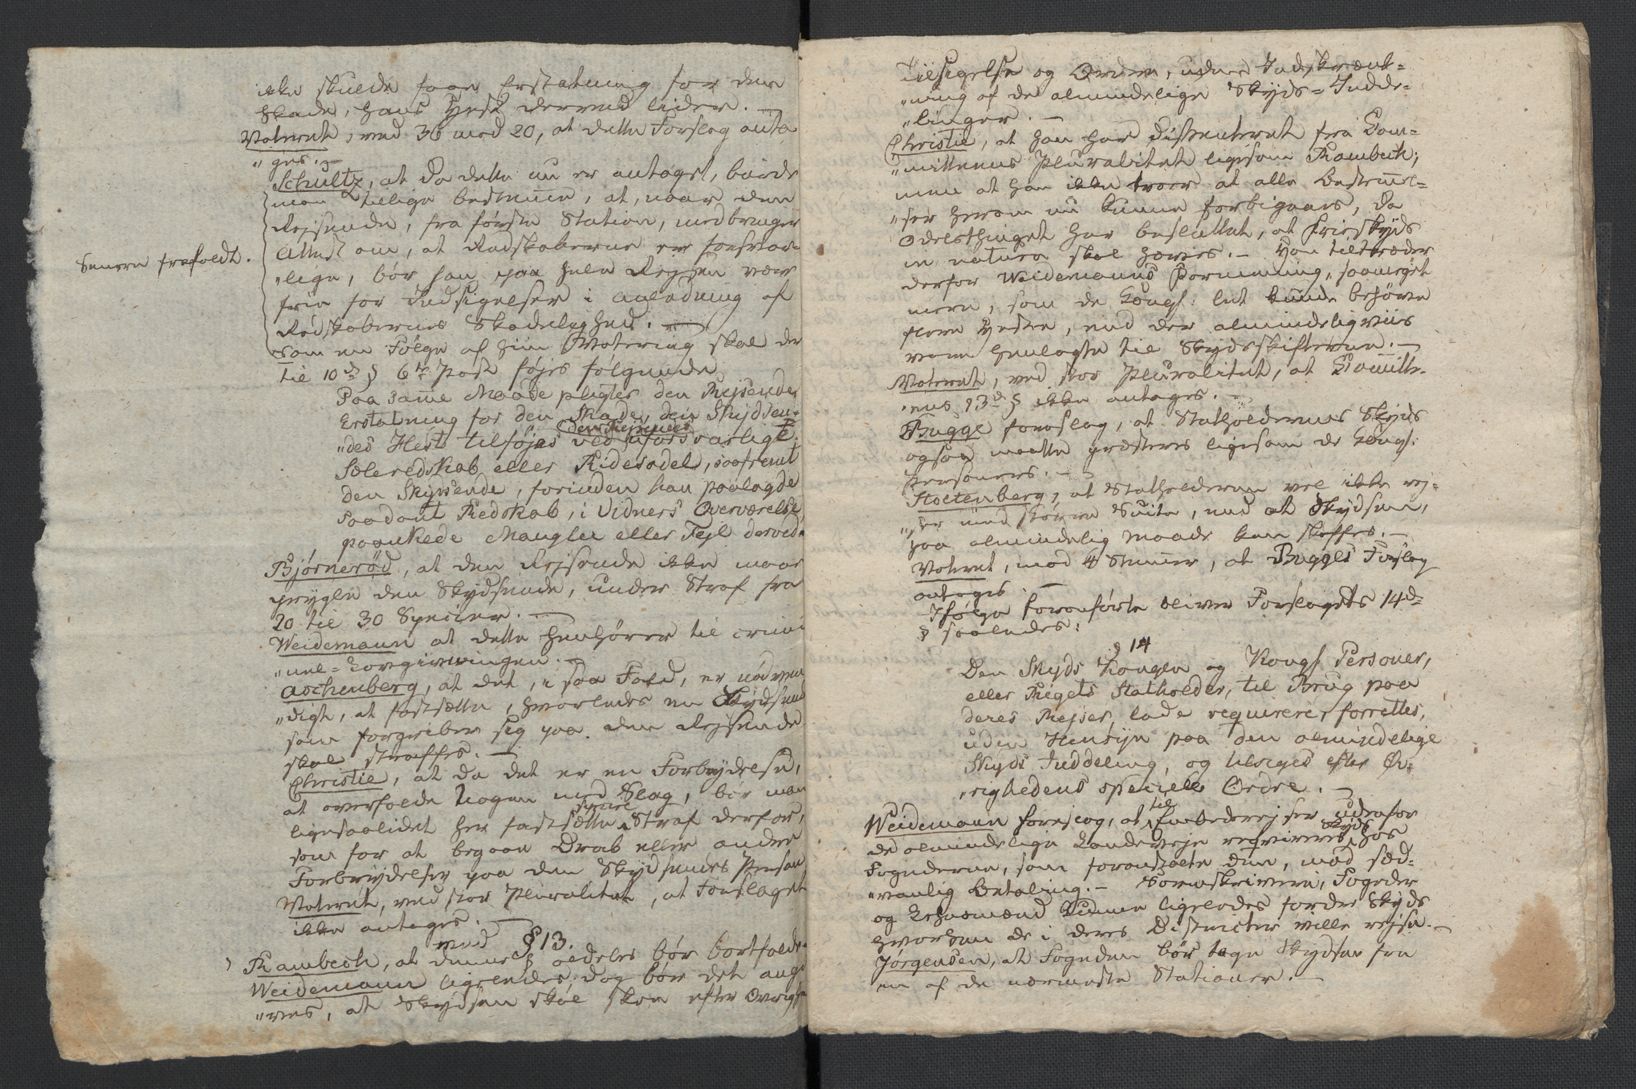 ikke skulde faae Erstatning for den
Skade, hans Hest derved lider. —
Voteret, med 36 mod 20, at dette Forslag anta
„ges. —
Schultz, at da dette nu er antaget, burde
man tillige bestemme, at, naar den
Rejsende, fra første Station, medbringer
Attest om, at Redskaberne ere forsvar
„lige, bør han paa hele Rejsen være
frie for Indsigelser i Anledning af
Redskabernes Skadelighed. —
Senere frafaldt.
Som en Følge af hiin Votering skal der
til 10de § 6te Post føjes følgende
Paa samme Maade pligter den Rejsende
Erstatning for den Skade, den Skydsen-
„des Hest tilføjes ved den Rejsendes uforsvarligt
Seleredskab eller Ridesadel, saafremt
den Skydsende, forinden han paalagde
saadant Redskab, i Vidners Overværelse
paankede Mangler eller Fejl derved.
Bjørnerød, at den Rejsende ikke maae
prygle den Skydsende, under Straf fra
20 til 30 Specier. —
Weidemann at dette henhører til crimi
„nel-Lovgivningen. —
Aschenberg, at det, i saa Fald, er nødven
„digt, at fastsætte, hvorledes en Skydsend
som forgriber sig paa den Rejsende
skal straffes. —
Christie, at da det er en Forbrydelse,
at overfalde Nogen med Slag, bør man
ligesaalidet her fastsætte speciel Straf derfor,
som for at begaae Drab eller andre
Forbrydelser paa den Skydsendes Person
Voteret, med stor Pluralitet, at Forslaget
ikke antages. —
med § 13.
Rambech, at denne § aldeles bør bortfalde
Weidemann ligeledes, dog bør det angi
„ves, at Skydsen skal skee efter Øvrigh
Tilsigelse og Ordre, uden Indskrænk-
„ning af de almindelige Skyds-Indde-
„linger. —
Christie, at han har dissenteret fra Com-
„mitteens Pluralitet ligesom Rambech;
men at han ikke troer at alle Bestemmel-
„ser herom nu kunne forbigaaes, da
Odelsthinget har besluttet, at Friskyds
in natura skal haves. — Han tiltræder
derfor Weidemanns Formening, saameget
mere, som de Kongl: let kunde behøve
flere Heste, end der almindeligviis
vare henlagte til Skydsskifterne. —
Voteret, ved stor Pluralitet, at Committe-
„ens 13de § ikke antages. —
Bugge foreslog, at Statholderens Skyds
ogsaa maatte præsteres ligesom de Kongl:
Personers. —
Stoltenberg, at Statholderen vel ikke rej-
„ser med større Suite, end at Skydsen,
paa almindelig Maade kan skaffes. —
Voteret, mod 4 Stemmer, at Bugges Forslag
antages. —
Ifølge foranførte bliver Forslagets 14de
§ saaledes:
§ 14
Den Skyds Kongen og Kongl. Personer,
eller Rigets Statholder, til Brug paa
deres Rejser, lade requirere, forrettes,
uden Hensyn paa den almindelige
Skyds Inddeling, og tilsiges efter Øv-
„righedens specielle Ordre. —
Weidemann foreslog, at til Embedsrejser udenfor
de almindelige Landeveje requireres Skyds hos
Fogderne, som foranstalte den, mod sæd-
„vanlig Betaling. — Sorenskrivere, Fogder
og Lehnsmænd kunne ligeledes fordre Skyds
hvorhen de i deres Districter ville rejse. —
Jørgensen, at Fogden bør tage Skydsen fra
en af de nærmeste Stationer. —